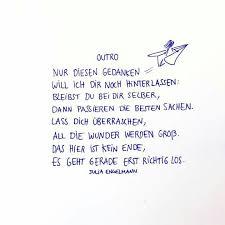 OUTRO
NUR DIESEN GEDANKEN
WILL ICH DIR NOCH HINTERLASSEN:
BLEIBST DU BEI DIR SELBER,
DANN PASSIEREN DIE BESTEN SACHEN.
LASS DICH ÜBERRASCHEN,
ALL DIE WUNDER WERDEN GROß.
DAS HIER IST KEIN ENDE,
ES GEHT GERADE ERST RICHTIG LOS.
JULIA ENGELMANN